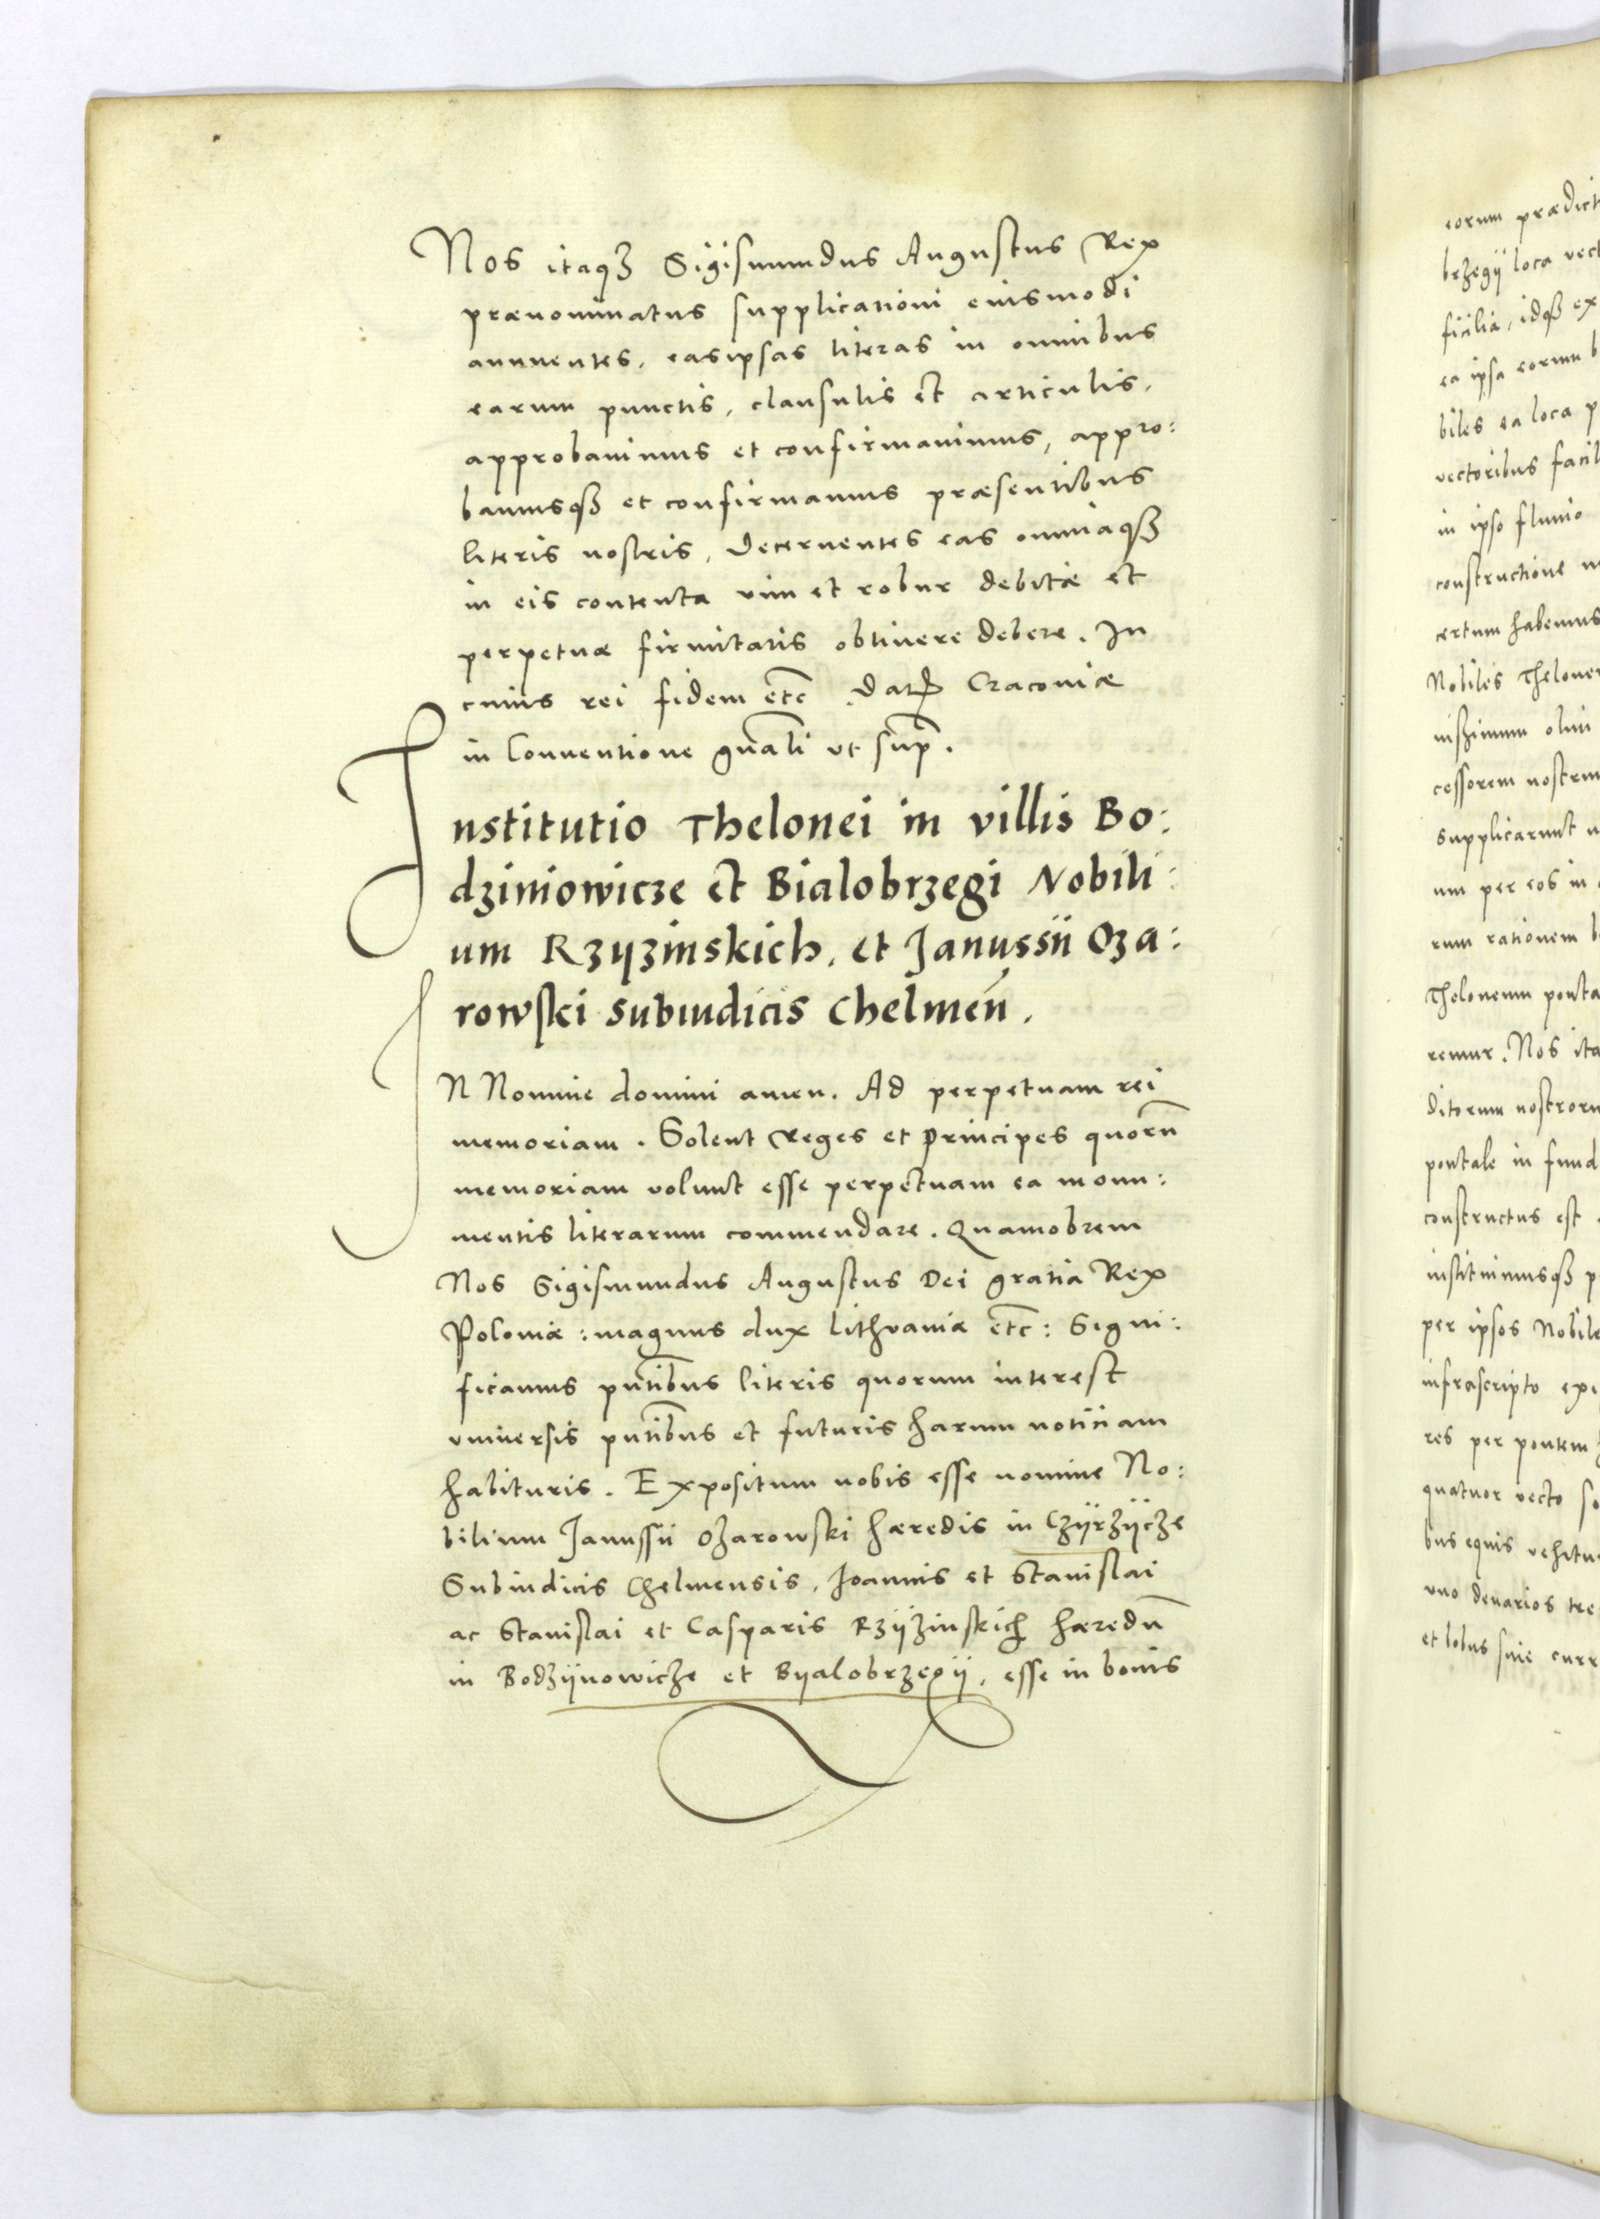 Nos itaqȝ Sigismundus Augustus Rex
prænominatus supplicationi eiusmodi
annuentes, easipsas literas in omnibus
earum punctis, clausulis et articulis,
approbauimus et confirmauimus, appro:
bamusqȝ et confirmamus præsentibus
literis nostris, decernentes eas omniaqȝ
in eis contenta vim et robur debitæ et
perpetuæ firmitatis obtinere debere. In
cuius rei fidem etc̄. Datꝭ Cracouiæ
in Conuentione gn̄ali vt sup̄.
Institutio Thelonei in villis Bo:
dziniowicze et Bialobrzegi Nobili:
um Rzyzinskich, et Janussii Oza:
rowski subiudicis Chelmen̄.
IN Nomine domini amen. Ad perpetuam rei
memoriam. Solent reges et principes quorū
memoriam volunt esse perpetuam ea monu:
mentis literarum commendare. Quamobrem
Nos Sigismundus Augustus Dei gratia Rex
Poloniæ: magnus dux Lithvaniæ etc̄: Signi:
ficamus pn̄tibus literis quorum interest
vniuersis pn̄tibus et futuris harum noticiam
habituris. Expositum nobis esse nomine No:
bilium Janussii Ozarowski hæredis in Czÿrzÿcze
Subiudicis Chelmensis, Joannis et Stanislai
ac Stanislai et Casparis Rzÿzinskich hæredū
in Bodzÿnowicze et Byalobrzegÿ, esse in bonis
eorum prædict
brzegÿ loca vect
ficilia, idqȝ ex
ea ipsa eorum b
biles ea loca p
vectoribus facil
in ipso fluuio
constructione
certum habemus
Nobiles Thelone
nissimum olim
cessorem nostrum
supplicarunt
um per eos in
rum rationem
Theloneum ponta
remur. Nos ita
ditorum nostroru
pontale in fund
constructus est
instituimusqȝ p
per ipsos Nobile
infrascripto exi
res per pontem
quatuor vecto
bus equis vehitu
vno denarios tre
et bobus siue curr